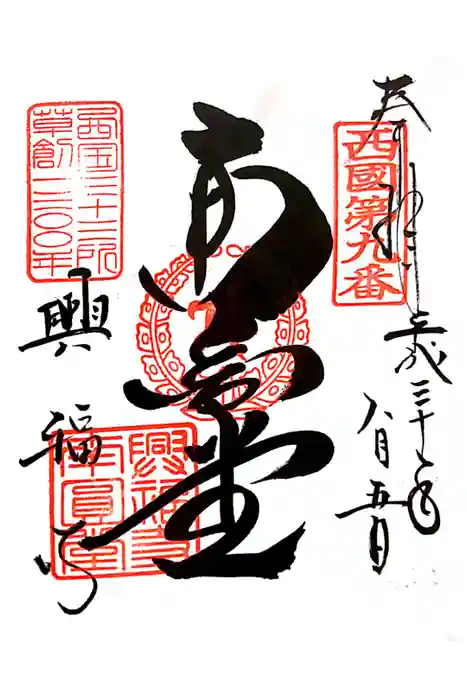 奉拝
西國第九番
平成三十年
八月五日
南円堂
西国三十三所
草創一三〇〇年
興福寺
興福寺
南圓堂